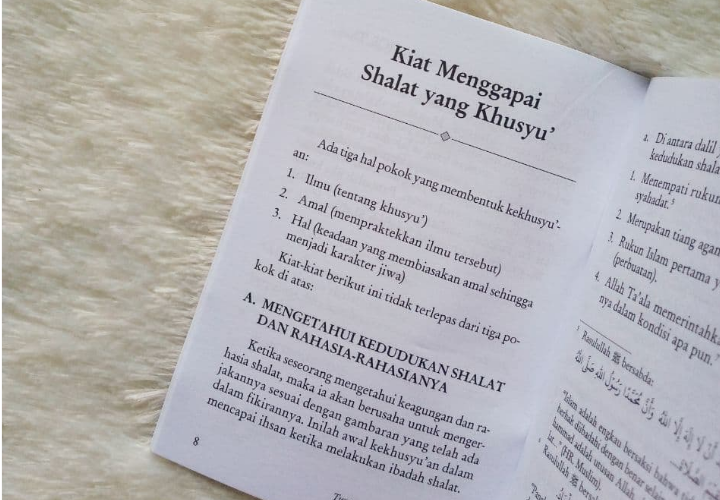 Kiat Menggapai
Shalat yang Khusyu'
Ada tiga hal pokok yang membentuk kekhusyu'-
an:
1. Ilmu (tentang khusyu')
2. Amal (mempraktekkan ilmu tersebut)
3. Hal (keadaan yang membiasakan amal sehingga
menjadi karakter jiwa)
Kiat-kiat berikut ini tidak terlepas dari tiga po-
kok di atas:
A. MENGETAHUI KEDUDUKAN SHALAT
DAN RAHASIA-RAHASIANYA
Ketika seseorang mengetahui keagungan dan ra-
hasia shalat, maka ia akan berusaha untuk menger-
jakannya sesuai dengan gambaran yang telah ada
dalam fikirannya. Inilah awal kekhusyu'an dalam
mencapai ihsan ketika melakukan ibadah shalat.
8
a. Di antara dalil
kedudukan
1. Menempati rukun
syahadat.⁵
2. Merupakan tiang
3. Rukun Islam pertama
(perbuatan).
4. Allah Ta'ala
nya dalam kondisi apa pun.
⁵ Rasulullah ﷺ bersabda:
"Islam adalah engkau bersaksi bahwa
berhak diibadahi dengan benar
adalah utusan
(HR. Muslim).
Rasulullah ﷺ